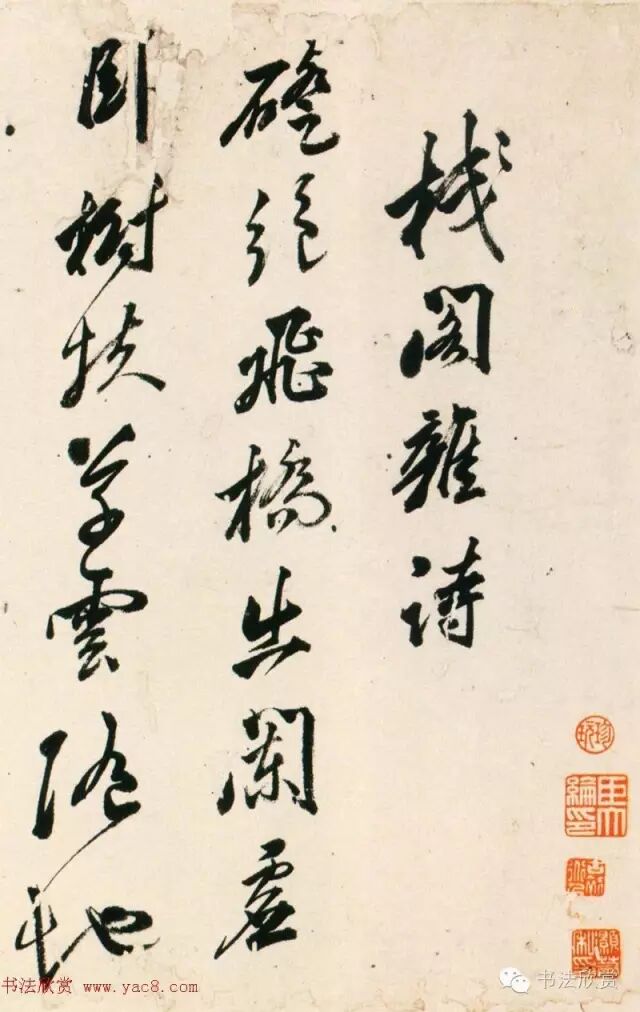 棧閣雜詩
磴絕飛橋出闌虛
臥樹扶草雲隨地
书法欣赏 www.yac8.com
书法欣赏